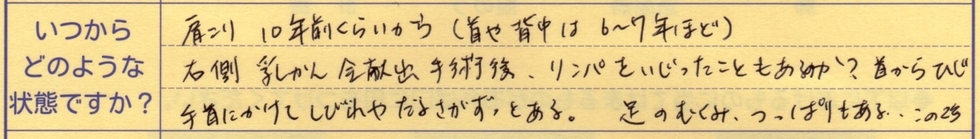 いつから
どのような
状態ですか?
肩こり 10年前くらいから (首や背中は 6〜7年ほど)
右側 乳がん 全摘出 手術後、リンパをいじったこともあるのか? 首からひじ
手首にかけてしびれやだるさがずっとある。 足のむくみ、つっぱりもある.. この2、3